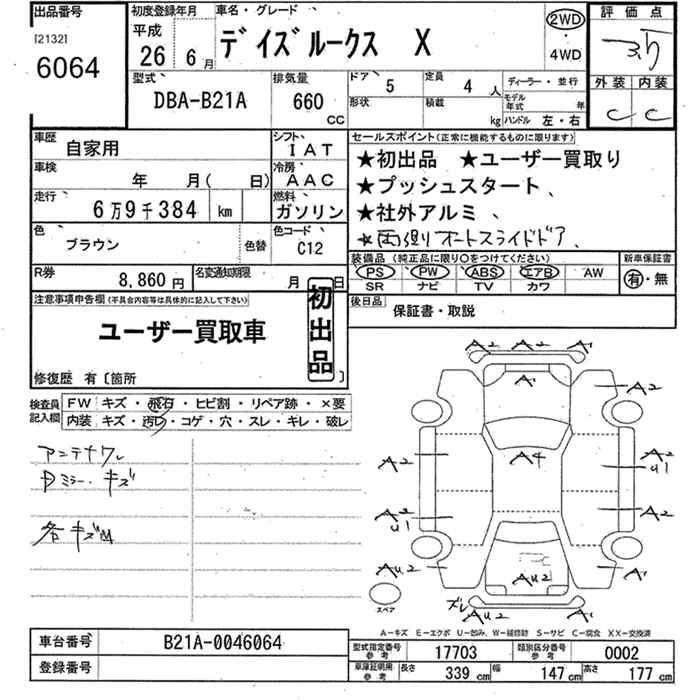 出品番号
[2132]
6064
初度登録年月
平成
26 6月
車名・グレード
デイズルークス X
2WD
・
4WD
評価点
3.5
外装 内装
C C
型式
DBA-B21A
排気量
660
CC
ドア 5
定員 4 人
ディーラー・並行
形状
積載 kg
モデル年式 年
ハンドル 左・右
車歴
自家用
シフト
IAT
車検
年 月( 日)
冷房
AAC
走行
6万9千384 km
燃料
ガソリン
色
ブラウン
色替
色コード
C12
R券
8,860円
名変通知期限
月 日
セールスポイント(正常に機能するものに限ります)
★初出品 ★ユーザー買取り
★プッシュスタート、
★社外アルミ、
★両側オートスライドドア、
装備品(純正品に限り○をつけてください)
PS PW ABS エアB AW
SR ナビ TV カワ
新車保証書
有・無
後日品
保証書・取説
注意事項申告欄(不具合内容等は具体的に記入して下さい)
ユーザー買取車
初出品
修復歴 有〔箇所 〕
検査員記入欄
FW キズ・飛石・ヒビ割・リペア跡・×要
内装 キズ・汚レ・コゲ・穴・スレ・キレ・破レ
アンテナワレ
Dミラーキズ
各キズM
A2 A2 A1
A1
A2
A2
A4
A2
U1
A2
U1
A2
AU2
AU2
A1
ズレ
AU2
AU2
スペア
A−キズ E−エクボ U−凹み、W−補修跡 S−サビ C−腐食 XX−交換済
車台番号
B21A-0046064
登録番号
型式指定番号
参考
17703
類別区分番号
参考
0002
車庫証明用
参考
長さ 339 cm
幅 147 cm
高さ 177 cm